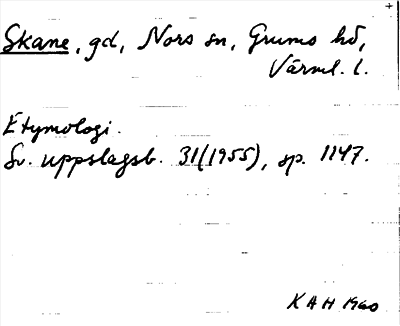 Skane, gd, Nors sn, Grums hd,
Värml. l.
Etymologi.
Sv. uppslagsb. 31(1955), sp. 1147.
KAH 1960